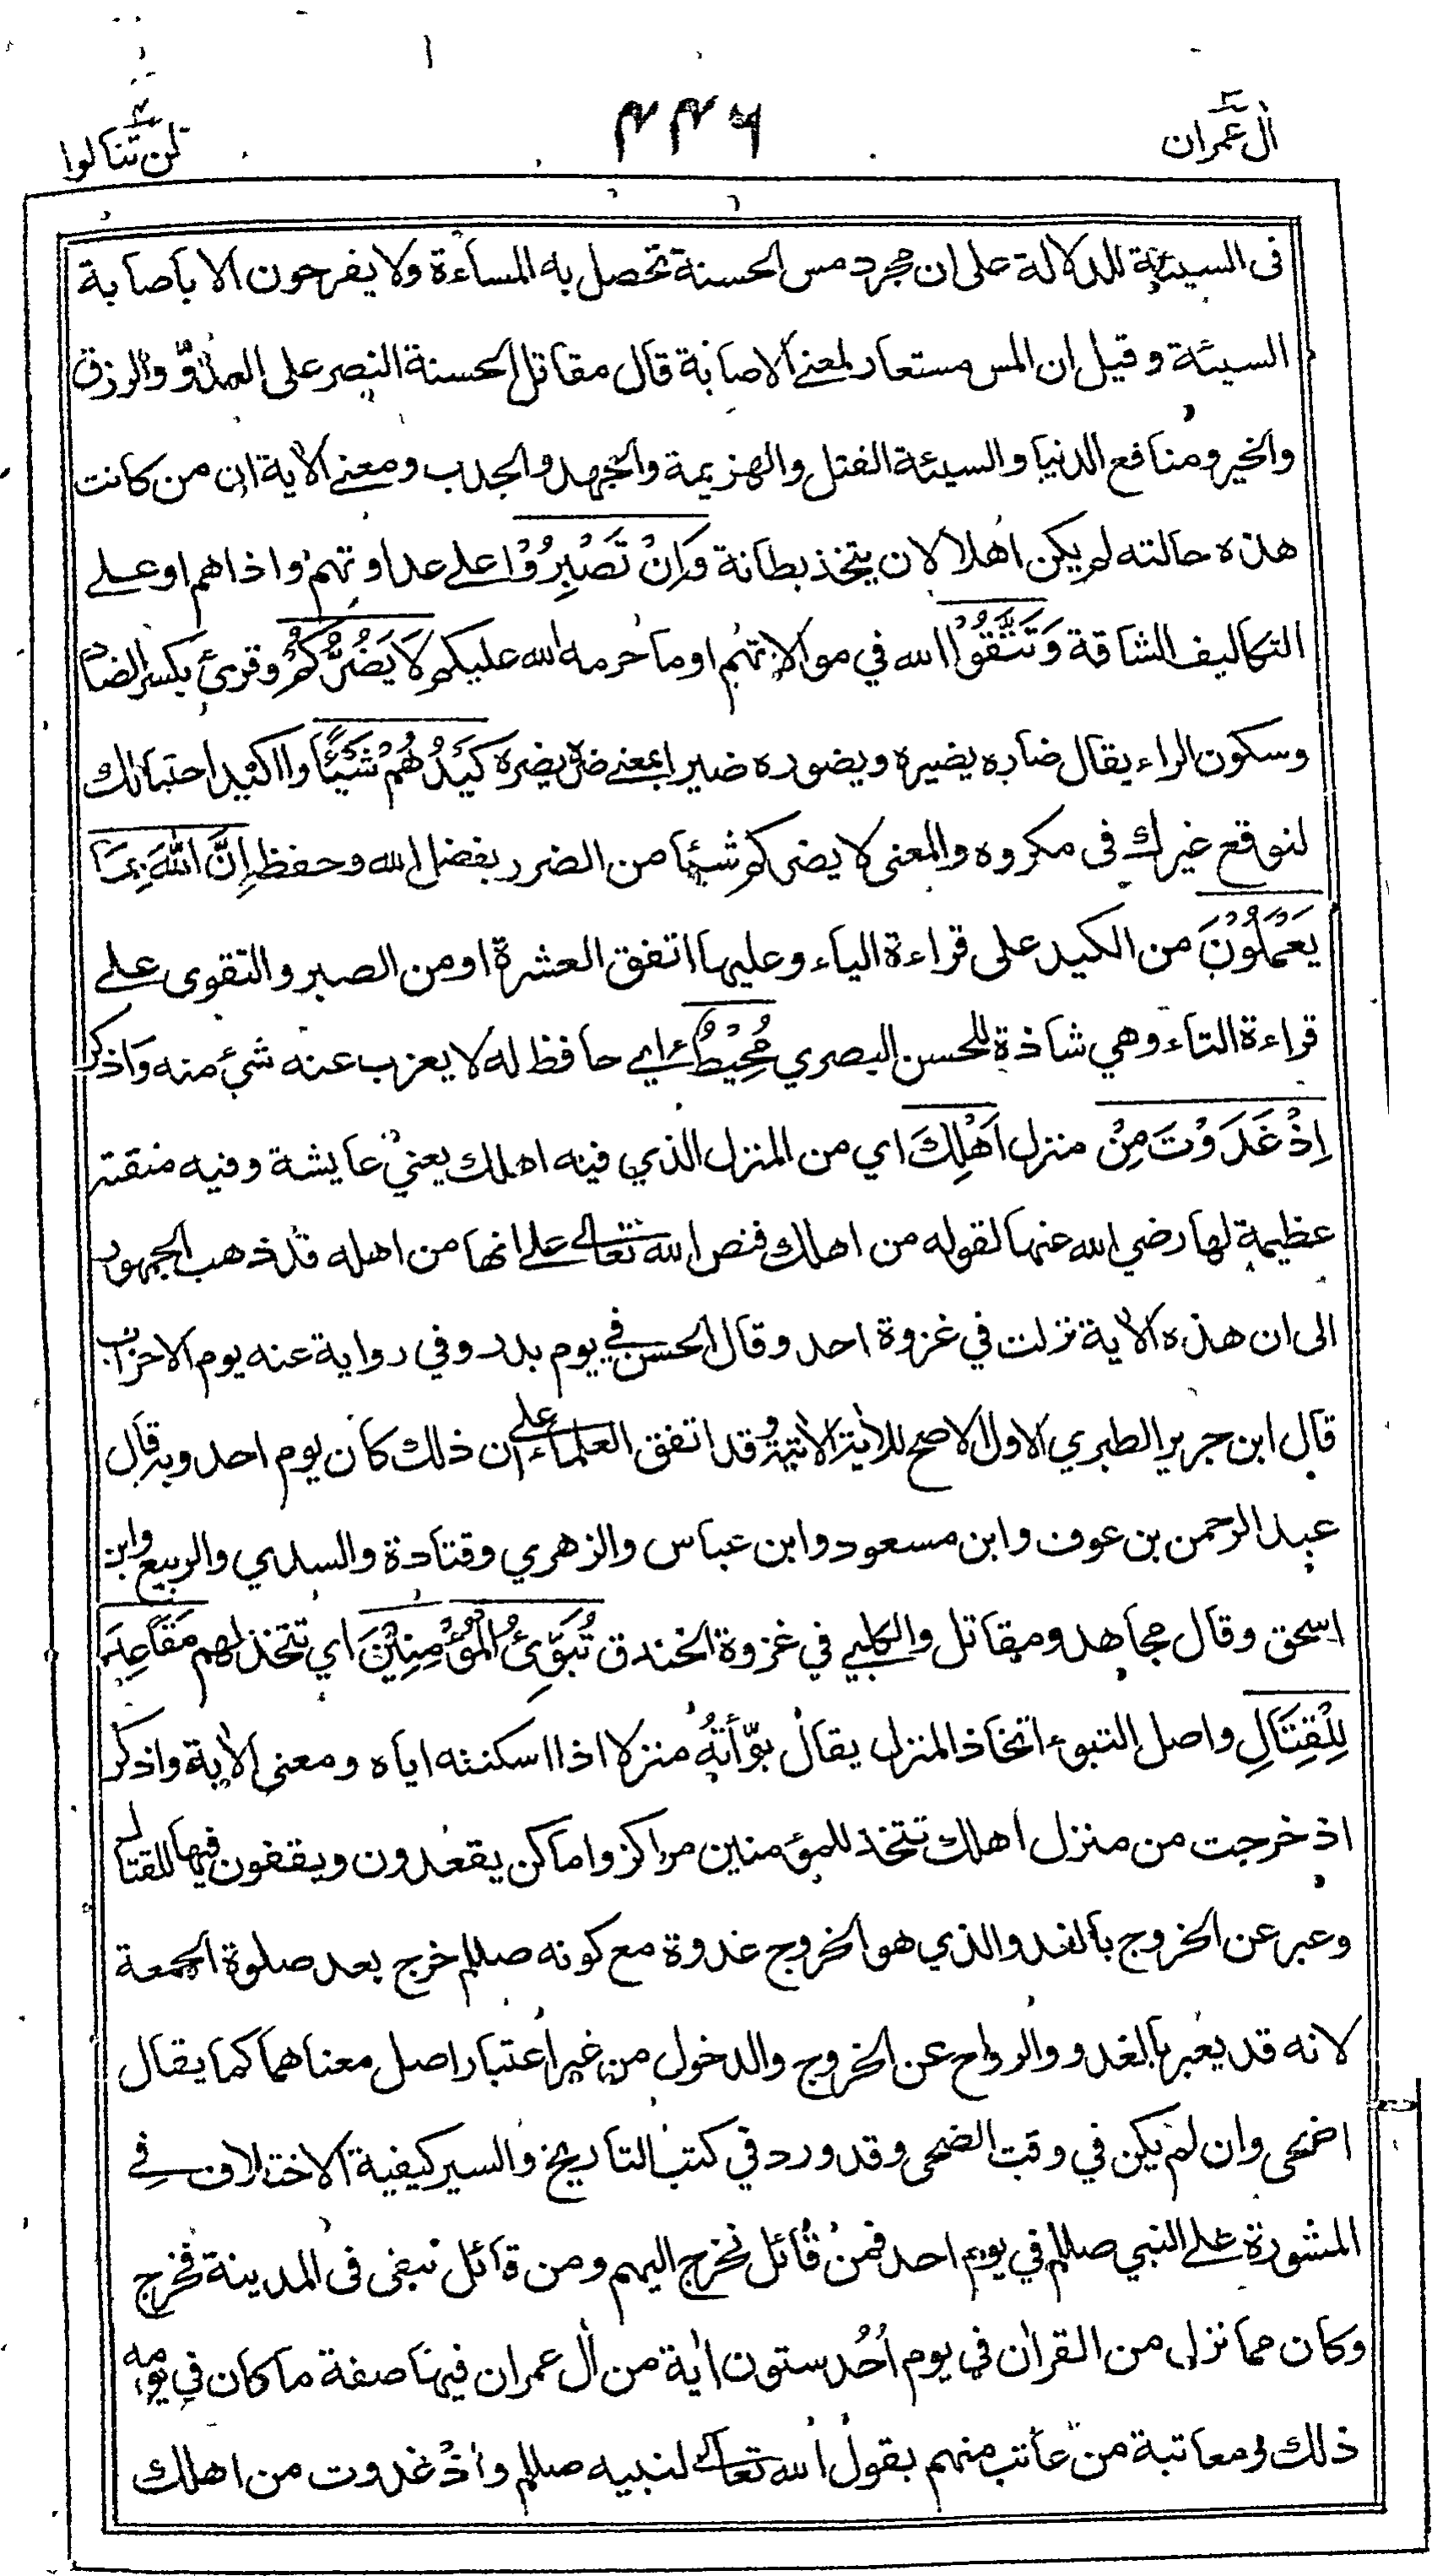 اٰل عمران ٣
۴۴۶
لن تنالوا ۴
فى السيئة للدلالة على ان مجرد مس الحسنة تحصل به المساءة ولا يفرحون الا بأصابة
السيئة وقيل ان المس مستعار لمعنے الاصابة قال مقاتل الحسنة النصر على العدوّ والرزق
والخير ومنافع الدنيا والسيئة القتل والهزيمة والجهد والجدب ومعنے الاٰية ان من كانت
هذه حالته لم يكن اهلا لان يتخذ بطانة وَاِنْ تَصْبِرُوْا علے عداوتهم واذاهم او علے
التكاليف الشاقة وَتَتَّقُوْا الله في موالاتهم او ما حرمه الله عليكم لَا يَضُرُّكُمْ وقرئ بكسر الضاد
وسكون الراء يقال ضاره يضيره ويضوره ضيرا بمعنے ضره يضره كَيْدُهُمْ شَيْئًا والكيد احتيالك
لتوقع غيرك فى مكروه والمعنى لا يضركم شيئا من الضرر بفضل الله وحفظه اِنَّ اللّٰهَ بِمَا
يَعْمَلُوْنَ من الكيد على قراءة الياء وعليها اتفق العشرة او من الصبر والتقوى علے
قراءة التاء وهي شاذة للحسن البصري مُحِيْطٌ اي حافظ له لا يعزب عنه شئ منه واذكر
اِذْ غَدَوْتَ مِنْ منزل اَهْلِكَ اي من المنزل الذي فيه اهلك يعني عايشة وفيه منقبة
عظيمة لها رضي الله عنها لقوله من اهلك فنص الله تعالے علے انها من اهله قد ذهب الجمهور
الى ان هذه الاٰية نزلت في غزوة احد وقال الحسن في يوم بدر وفي رواية عنه يوم الاحزاب
قال ابن جرير الطبري الاول الاصح للاٰية الاٰتية وقد اتفق العلماء علے ان ذلك كان يوم احد وبه قال
عبد الرحمن بن عوف وابن مسعود وابن عباس والزهري وقتادة والسدي والربيع وابن
اسحق وقال مجاهد ومقاتل والكلبي في غزوة الخندق تُبَوِّئُ الْمُؤْمِنِيْنَ اي تتخذ لهم مَقَاعِدَ
لِلْقِتَالِ واصل التبوء اتخاذ المنزل يقال بوّأته منزلا اذا اسكنته اياه ومعنى الاٰية واذكر
اذ خرجت من منزل اهلك تتخذ للمؤمنين مراكز واماكن يقعدون ويقفون فيها للقتال
وعبر عن الخروج بالغدو الذي هو الخروج غدوة مع كونه صللم خرج بعد صلوة الجمعة
لانه قد يعبر بالغدو والرواح عن الخروج والدخول من غير اعتبار اصل معناهما كما يقال
اضحى وان لم يكن في وقت الضحى وقد ورد في كتب التاريخ والسير كيفية الاختلاف في
المشورة علے النبي صللم في يوم احد فمن قائل نخرج اليهم ومن قائل نبقى فى المدينة فخرج
وكان مما نزل من القراٰن في يوم اُحُد ستون اٰية من اٰل عمران فيها صفة ما كان في يومه
ذلك ومعاتبة من عاتب منهم بقول الله تعالے لنبيه صللم واذ غدوت من اهلك